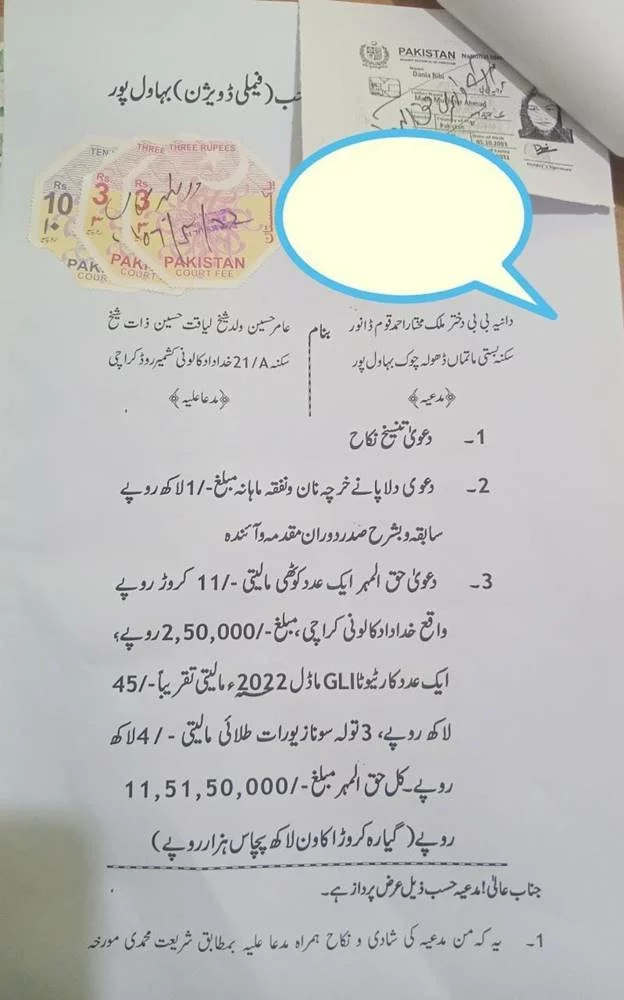 PAKISTAN National Iden
Name
Dania Bibi
Ahmad
Pakistan
Date of Birth
ب (فیملی ڈویژن) بہاول پور
TEN
Rs
10
۱۰
PAK
COUR
THREE
Rs
3
۳
PAK
COURT
THREE RUPEES
Rs
3
۳
PAKISTAN
COURT FEE
دانیہ بی بی دختر ملک مختار احمد قوم ڈانور
سکنہ بستی ماتماں ڈھولہ چوک بہاول پور
﴿مدعیہ﴾
بنام
عامر حسین ولد شیخ لیاقت حسین ذات شیخ
سکنہ 21/A خداداد کالونی کشمیر روڈ کراچی
﴿مدعا علیہ﴾
1۔ دعویٰ تنسیخ نکاح
2۔ دعوی دلا پانے خرچہ نان و نفقہ ماہانہ مبلغ -/1 لاکھ روپے
سابقہ و بشرح صدر دوران مقدمہ و آئندہ
3۔ دعویٰ حق المہر ایک عدد کوٹھی مالیتی -/11 کروڑ روپے
واقع خداداد کالونی کراچی، مبلغ -/2,50,000 روپے،
ایک عدد کار ٹیوٹا GLI ماڈل 2022ء مالیتی تقریباً -/45
لاکھ روپے، 3 تولہ سونا زیورات طلائی مالیتی -/4 لاکھ
روپے۔ کل حق المہر مبلغ -/11,51,50,000
روپے (گیارہ کروڑ اکاون لاکھ پچاس ہزار روپے)
جناب عالیٰ! مدعیہ حسب ذیل عرض پرداز ہے۔
1۔ یہ کہ من مدعیہ کی شادی و نکاح ہمراہ مدعا علیہ بمطابق شریعت محمدی مورخہ